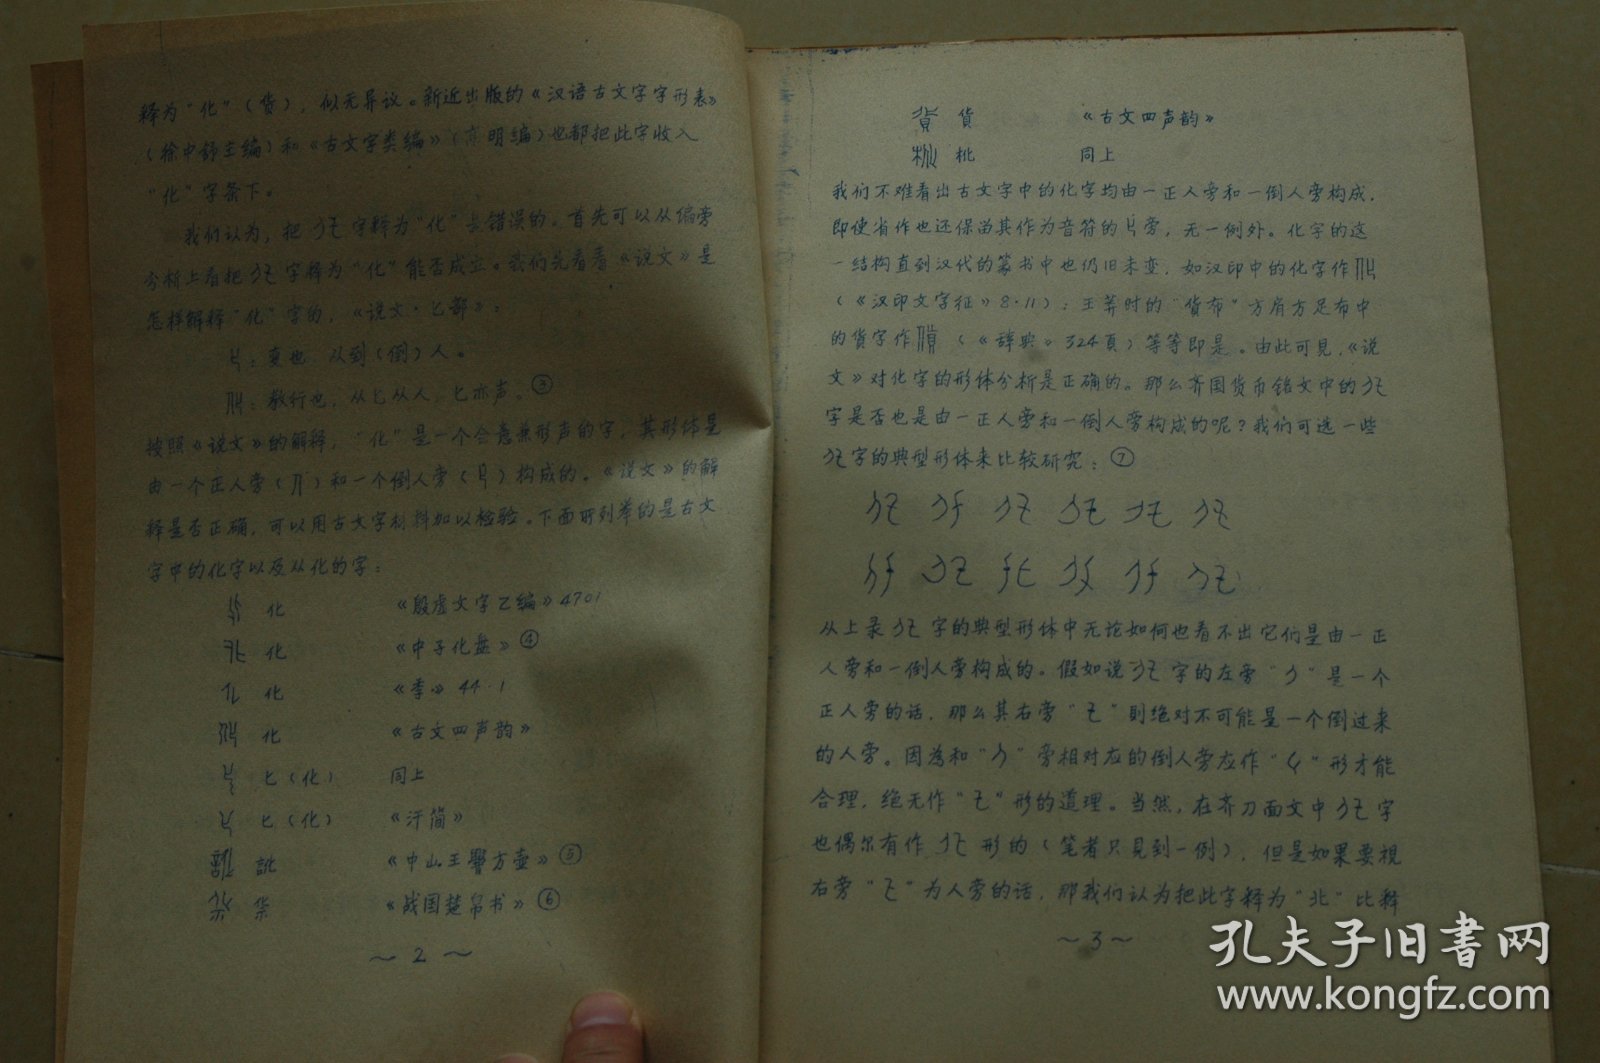 释为“化”（货），似无异议。新近出版的《汉语古文字字形表》
（徐中舒主编）和《古文字类编》（高明编）也都把此字收入
“化”字条下。
我们认为，把 字释为“化”是错误的。首先可以从偏旁
分析上看把 字释为“化”能否成立。我们先看看《说文》是
怎样解释“化”字的，《说文·匕部》：
：变也，从到（倒）人。
：教行也，从匕从人，匕亦声。③
按照《说文》的解释，“化”是一个会意兼形声的字，其形体是
由一个正人旁（ ）和一个倒人旁（ ）构成的。《说文》的解
释是否正确，可以用古文字材料加以检验。下面所列举的是古文
字中的化字以及从化的字：
化 《殷虚文字乙编》4701
化 《中子化盘》④
化 《季 》44·1
化 《古文四声韵》
匕（化） 同上
匕（化） 《汗简》
《中山王 方壶》⑤
《战国楚帛书》⑥
～2～
貨 《古文四声韵》
同上
我们不难看出古文字中的化字均由一正人旁和一倒人旁构成，
即使省作也还保留其作为音符的 旁，无一例外。化字的这
一结构直到汉代的篆书中也仍旧未变，如汉印中的化字作
（《汉印文字征》8·11）；王莽时的“货布”方肩方足布中
的货字作 （《辞典》324頁）等等即是。由此可見，《说
文》对化字的形体分析是正确的。那么齐国货币铭文中的
字是否也是由一正人旁和一倒人旁构成的呢？我们可选一些
字的典型形体来比较研究：⑦
从上录 字的典型形体中无论如何也看不出它们是由一正
人旁和一倒人旁构成的。假如说 字的左旁“ ”是一个
正人旁的话，那么其右旁“ ”则绝对不可能是一个倒过来
的人旁。因為和“ ”旁相对应的倒人旁应作“ ”形才能
合理，绝无作“ ”形的道理。当然，在齐刀面文中 字
也偶尔有作 形的（笔者只見到一例），但是如果要視
右旁“ ”为人旁的话，那我们认为把此字释为“北”比释
～3～
孔夫子旧書网
www.kongfz.com